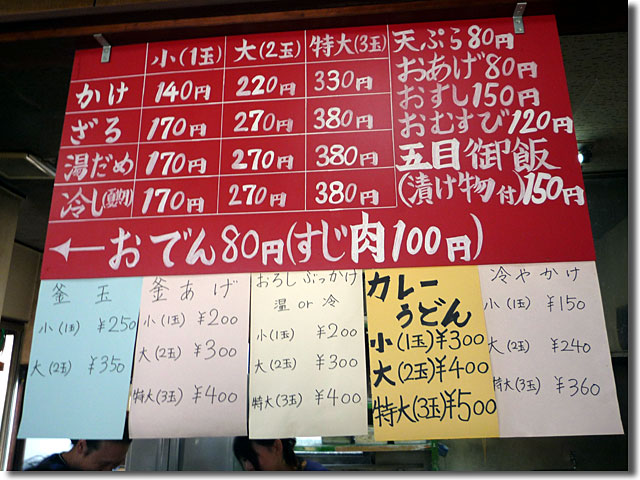 小(1玉) 大(2玉) 特大(3玉)
かけ 140円 220円 330円
ざる 170円 270円 380円
湯だめ 170円 270円 380円
冷し 170円 270円 380円
天ぷら80円
おあげ80円
おすし150円
おむすび120円
五目御飯
(漬け物付)150円
←おでん80円(すじ肉100円)
釜玉
小(1玉) ¥250
大(2玉) ¥350
釜あげ
小(1玉) ¥200
大(2玉) ¥300
特大(3玉) ¥400
おろしぶっかけ
温or冷
小(1玉) ¥200
大(2玉) ¥300
特大(3玉) ¥400
カレー
うどん
小(1玉)¥300
大(2玉)¥400
特大(3玉)¥500
冷やかけ
小(1玉) ¥150
大(2玉) ¥240
特大(3玉) ¥360